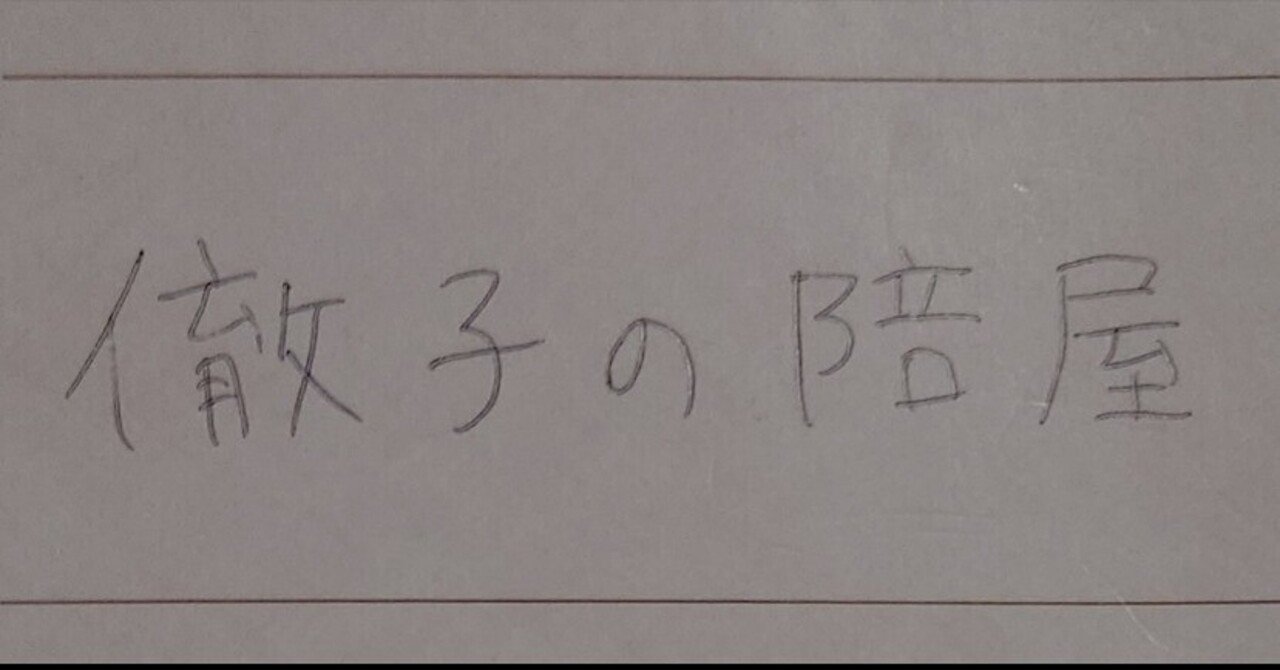 徹子の陪屋